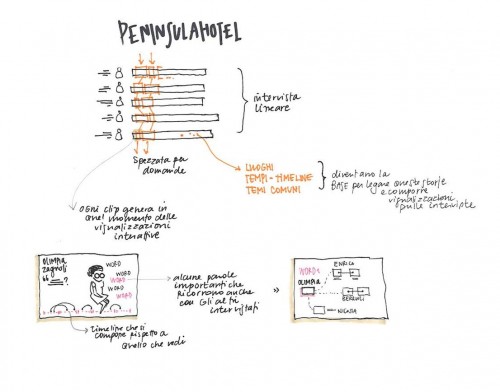 PENINSULAHOTEL
intervista
lineare
Spezzata per
domande
LUOGHI
TEMPI-TIMELINE
TEMI COMUNI
diventano la
BASE per legare queste storie
e comporre
visualizzazioni
sulle interviste
ogni clip genera in
quel momento delle
visualizzazioni
interattive
OLIMPIA
zagnoli
“ ?
WORD
WORD
WORD
WORD
WORD
alcune parole
importanti che
ricorrono anche
con Gli altri
intervistati
»
WORD1
ENRICA
OLIMPIA
NICASIA
timeline che si
compone rispetto a
quello che vedi